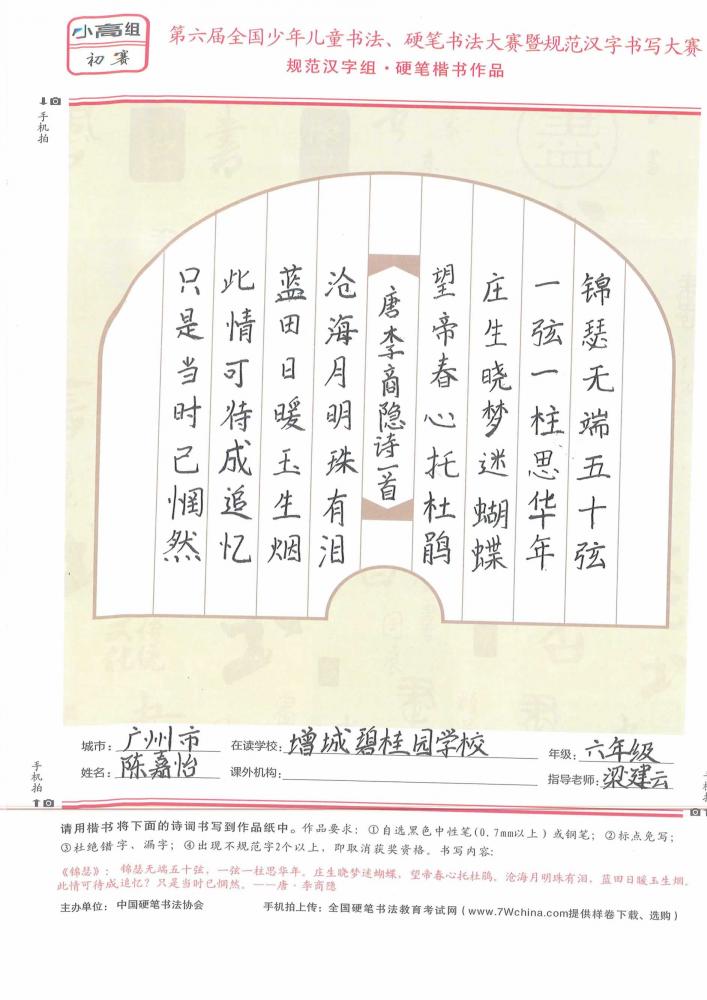 小高组
初赛
第六届全国少年儿童书法、硬笔书法大赛暨规范汉字书写大赛
规范汉字组·硬笔楷书作品
手机拍
锦瑟无端五十弦
一弦一柱思华年
庄生晓梦迷蝴蝶
望帝春心托杜鹃
唐李商隐诗一首
沧海月明珠有泪
蓝田日暖玉生烟
此情可待成追忆
只是当时已惘然
城市：广州市 在读学校：增城碧桂园学校 年级：六年级
姓名：陈嘉怡 课外机构： 指导老师：梁建云
手机拍
请用楷书将下面的诗词书写到作品纸中。作品要求：①自选黑色中性笔(0.7mm以上)或钢笔；②标点免写；
③杜绝错字、漏字；④出现不规范字2个以上，即取消获奖资格。书写内容：
《锦瑟》：锦瑟无端五十弦，一弦一柱思华年。庄生晓梦迷蝴蝶，望帝春心托杜鹃。沧海月明珠有泪，蓝田日暖玉生烟。
此情可待成追忆？只是当时已惘然。——唐·李商隐
主办单位：中国硬笔书法协会 手机拍上传：全国硬笔书法教育考试网（www.7Wchina.com提供样卷下载、选购）